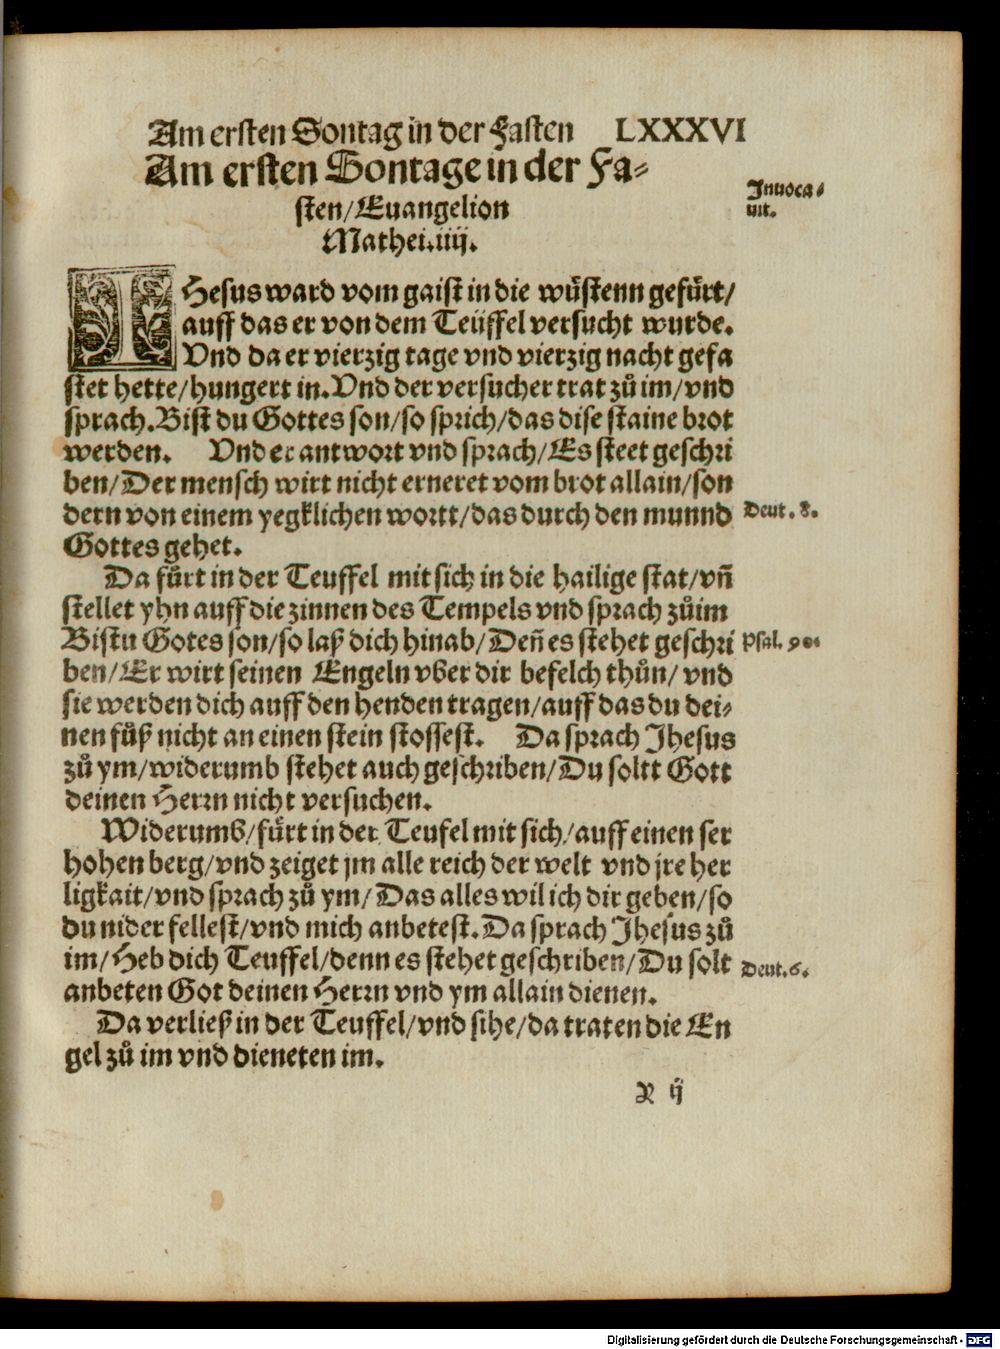 Am ersten Sontag in der Fasten LXXXVI
Am ersten Sontage in der Fa⸗
sten/Euangelion
Mathei.iiij.
Inuoca⸗
uit.
IHesus ward vom gaist in die wüstenn gefürt/
auff das er von dem Teüffel versucht wurde.
Vnd da er vierzig tage vnd vierzig nacht gefa
stet hette/hungert in.Vnd der versucher trat zů im/vnd
sprach.Bist du Gottes son/so sprich/das dise staine brot
werden. Vnd er antwort vnd sprach/Es steet geschri
ben/Der mensch wirt nicht erneret vom brot allain/son
dern von einem yegklichen wortt/das durch den munnd
Deut. 8.
Gottes gehet.
Da fürt in der Teuffel mit sich in die hailige stat/vñ
stellet yhn auff die zinnen des Tempels vnd sprach zů im
Bistu Gotes son/so laß dich hinab/Deñ es stehet geschri
Psal. 90.
ben/Er wirt seinen Engeln vber dir befelch thůn/ vnd
sie werden dich auff den henden tragen/auff das du dei⸗
nen fůß nicht an einen stein stossest. Da sprach Jhesus
zů ym/widerumb stehet auch geschriben/Du soltt Gott
deinen Herrn nicht versuchen.
Widerumb/fürt in der Teufel mit sich/auff einen ser
hohen berg/vnd zeiget jm alle reich der welt vnd jre her
ligkait/vnd sprach zů ym/Das alles wil ich dir geben/so
du nider fellest/vnd mich anbetest.Da sprach Jhesus zů
im/Heb dich Teuffel/denn es stehet geschriben/Du solt
Deut.6.
anbeten Got deinen Herrn vnd ym allain dienen.
Da verließ in der Teuffel/vnd sihe/da traten die En
gel zů im vnd dieneten im.
X ij
Digitalisierung gefördert durch die Deutsche Forschungsgemeinschaft - DFG